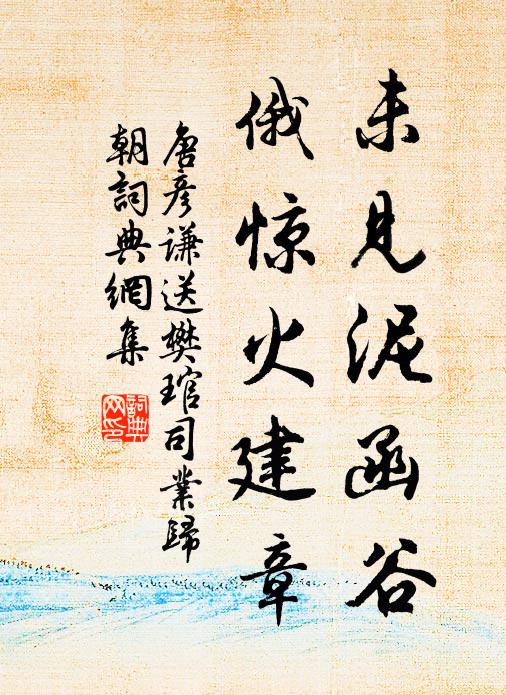 未见泥函谷
俄惊火建章
唐彦谦送樊琯司業歸
朝詞典網集
詞典网印